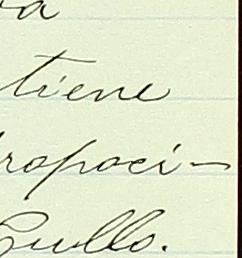 va
tiene
ropoci-
Cullo.